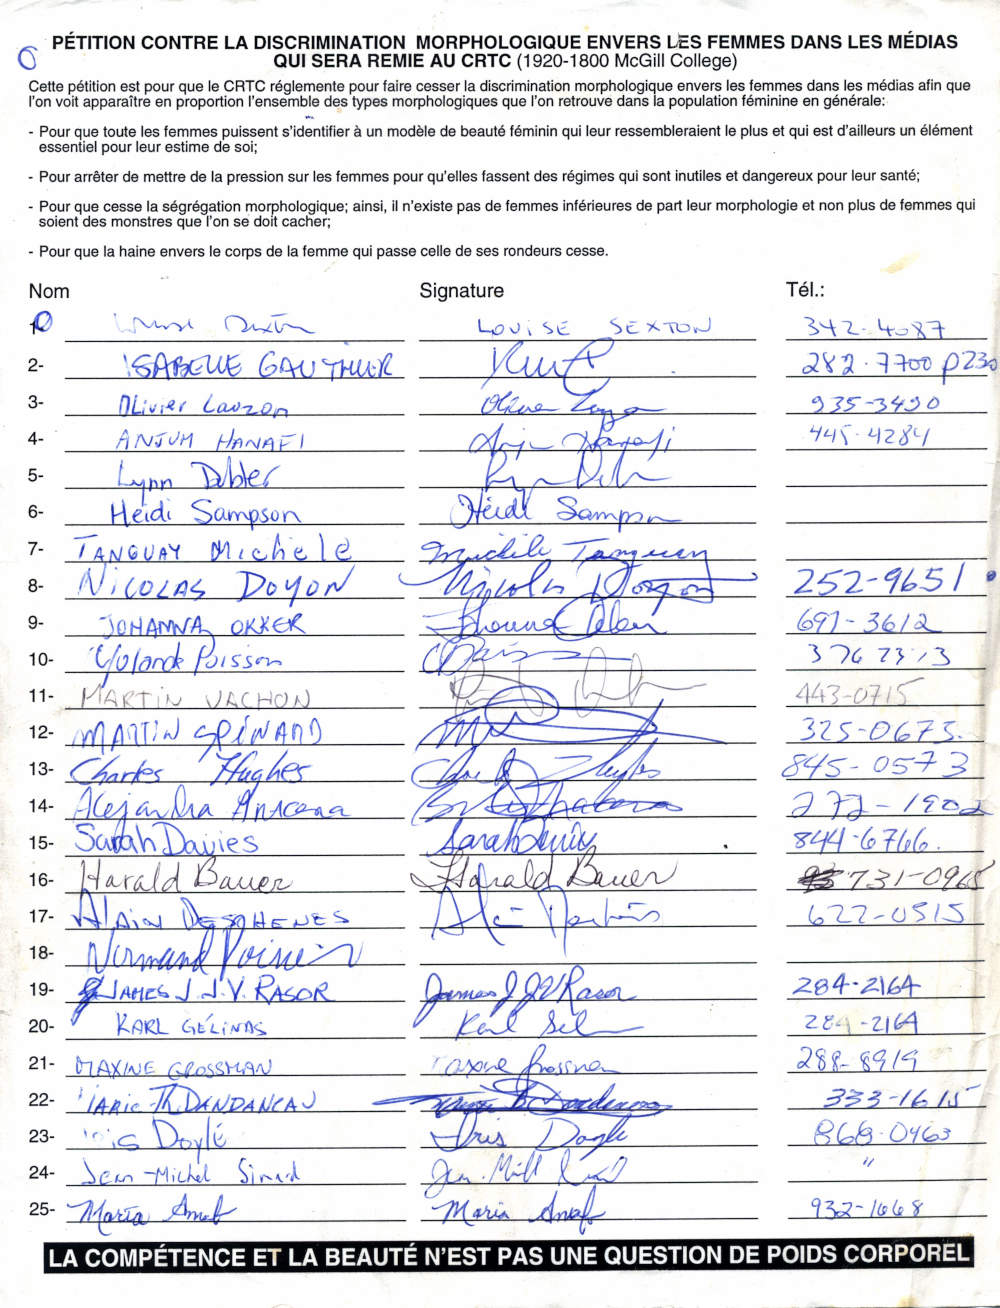 PÉTITION CONTRE LA DISCRIMINATION MORPHOLOGIQUE ENVERS LES FEMMES DANS LES MÉDIAS
QUI SERA REMIE AU CRTC (1920-1800 McGill College)
Cette pétition est pour que le CRTC réglemente pour faire cesser la discrimination morphologique envers les femmes dans les médias afin que
l'on voit apparaître en proportion l'ensemble des types morphologiques que l'on retrouve dans la population féminine en générale:
- Pour que toute les femmes puissent s'identifier à un modèle de beauté féminin qui leur ressembleraient le plus et qui est d'ailleurs un élément
essentiel pour leur estime de soi;
- Pour arrêter de mettre de la pression sur les femmes pour qu'elles fassent des régimes qui sont inutiles et dangereux pour leur santé;
- Pour que cesse la ségrégation morphologique; ainsi, il n'existe pas de femmes inférieures de part leur morphologie et non plus de femmes qui
soient des monstres que l'on se doit cacher;
- Pour que la haine envers le corps de la femme qui passe celle de ses rondeurs cesse.
Nom Signature Tél.:
Louise Sexton LOUISE SEXTON 342-4087
2- ISABELLE GAUTHIER 282-7700 p230
3- Olivier Lauzon 935-3490
4- ANJUM HANAFI 445-4284
5- Lynn
6- Heidi Sampson Heidi Sampson
7- TANGUAY Michele Michele Tanguay
8- NICOLAS DOYON Nicolas Doyon 252-9651
9- JOHANNA OKKER 691-3612
10- Yolande Poisson 376 2313
11- MARTIN VACHON 443-0715
12- MARTIN SPINARD 325-0673.
13- Charles Hughes Charles Hughes 845-0573
14- Alejandra 272-1902
15- Sarah Davies Sarah Davies 844-6766.
16- Harald Bauer Harald Bauer 731-0965
17- ALAIN DESCHENES 622-0515
18- Normand
19- JAMES J. J.V. RASOR James J JV Rasor 284-2164
20- KARL GÉLINAS Karl 284-2164
21- MAXINE GROSSMAN Maxine Grossman 288-8919
22- MARIE-TH DANDANEAU 333-1615
23- Iris Doyle Iris Doyle 868-0463
24- Jean-Michel Simard "
25- Maria Maria 932-1668
LA COMPÉTENCE ET LA BEAUTÉ N'EST PAS UNE QUESTION DE POIDS CORPOREL